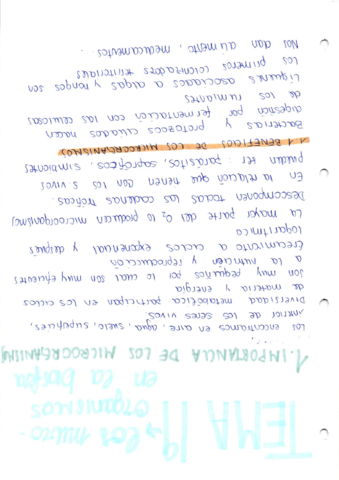 TEMA 19 → los micro-
organismos
en la biosfera
1. IMPORTANCIA DE LOS MICROORGANISMOS
Los encontramos en aire, agua, suelo, superficies,
interior de los seres vivos
Diversidad metabólica participan en los ciclos
de materia y energía
son muy pequeños por lo cual son muy eficientes
a la nutrición y reproducción
crecimiento a ciclos exponencial y después
logarítmica
La mayor parte del O₂ lo producen microorganismos
Descomponen todas las cadenas tróficas.
En la relación que tienen con los s vivos
pueden ser: parásitos, saprófitos, simbiontes
1.1 BENEFICIOS DE LOS MICROORGANISMOS
Bacterias y protoctos ciliados hacen
digestión por fermentación con las celulosas
de los rumiantes
Líquenes asociados a algas y hongos son
los primeros colonizadores territoriales
Nos dan alimento, medicamentos...